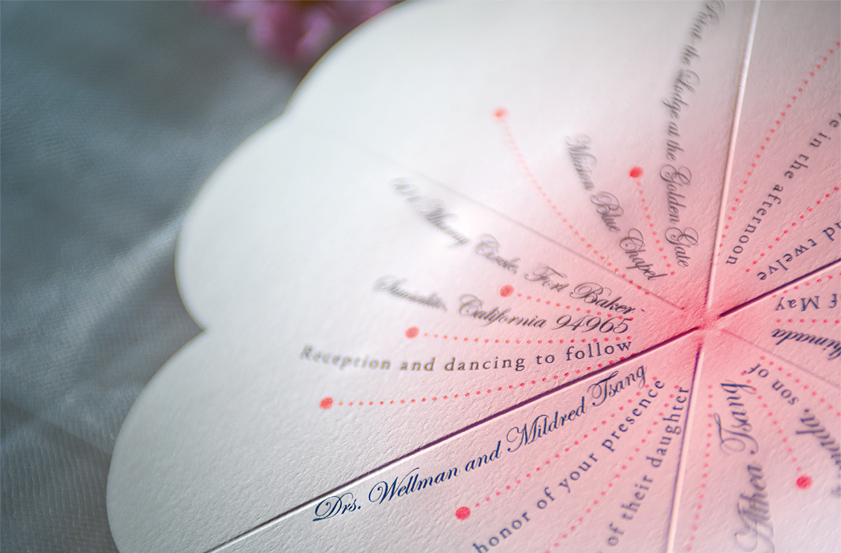 Drs. Wellman and Mildred Tsang
honor of your presence
of their daughter
Althea Tsang
son of
of May
and twelve
in the afternoon
at the Lodge at the Golden Gate
Mission Blue Chapel
Circle, Fort Baker
Sausalito, California 94965
Reception and dancing to follow